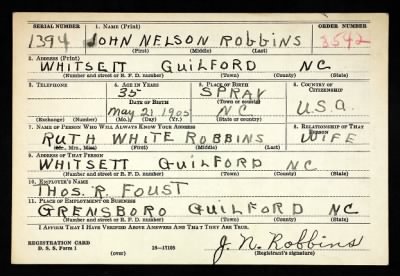 SERIAL NUMBER 1. NAME (Print) ORDER NUMBER
1394 JOHN NELSON ROBBINS 3542
(First) (Middle) (Last)
2. ADDRESS (Print)
WHITSETT GUILFORD NC
(Number and street or R. F. D. number) (Town) (County) (State)
3. TELEPHONE 4. AGE IN YEARS 5. PLACE OF BIRTH 6. COUNTRY OF CITIZENSHIP
35 SPRAY
DATE OF BIRTH (Town or county)
May 21 1905 NC U.S.A.
(Exchange) (Number) (Mo.) (Day) (Yr.) (State or country)
7. NAME OF PERSON WHO WILL ALWAYS KNOW YOUR ADDRESS 8. RELATIONSHIP OF THAT PERSON
RUTH WHITE ROBBINS WIFE
(Mr., Mrs., Miss) (First) (Middle) (Last)
9. ADDRESS OF THAT PERSON
WHITSETT GUILFORD NC
(Number and street or R. F. D. number) (Town) (County) (State)
10. EMPLOYER'S NAME
THOS. R. FOUST
11. PLACE OF EMPLOYMENT OR BUSINESS
GRENSBORO GUILFORD NC
(Number and street or R. F. D. number) (Town) (County) (State)
I AFFIRM THAT I HAVE VERIFIED ABOVE ANSWERS AND THAT THEY ARE TRUE.
REGISTRATION CARD J. N. Robbins
D. S. S. Form 1 (over) 16—17105 (Registrant's signature)